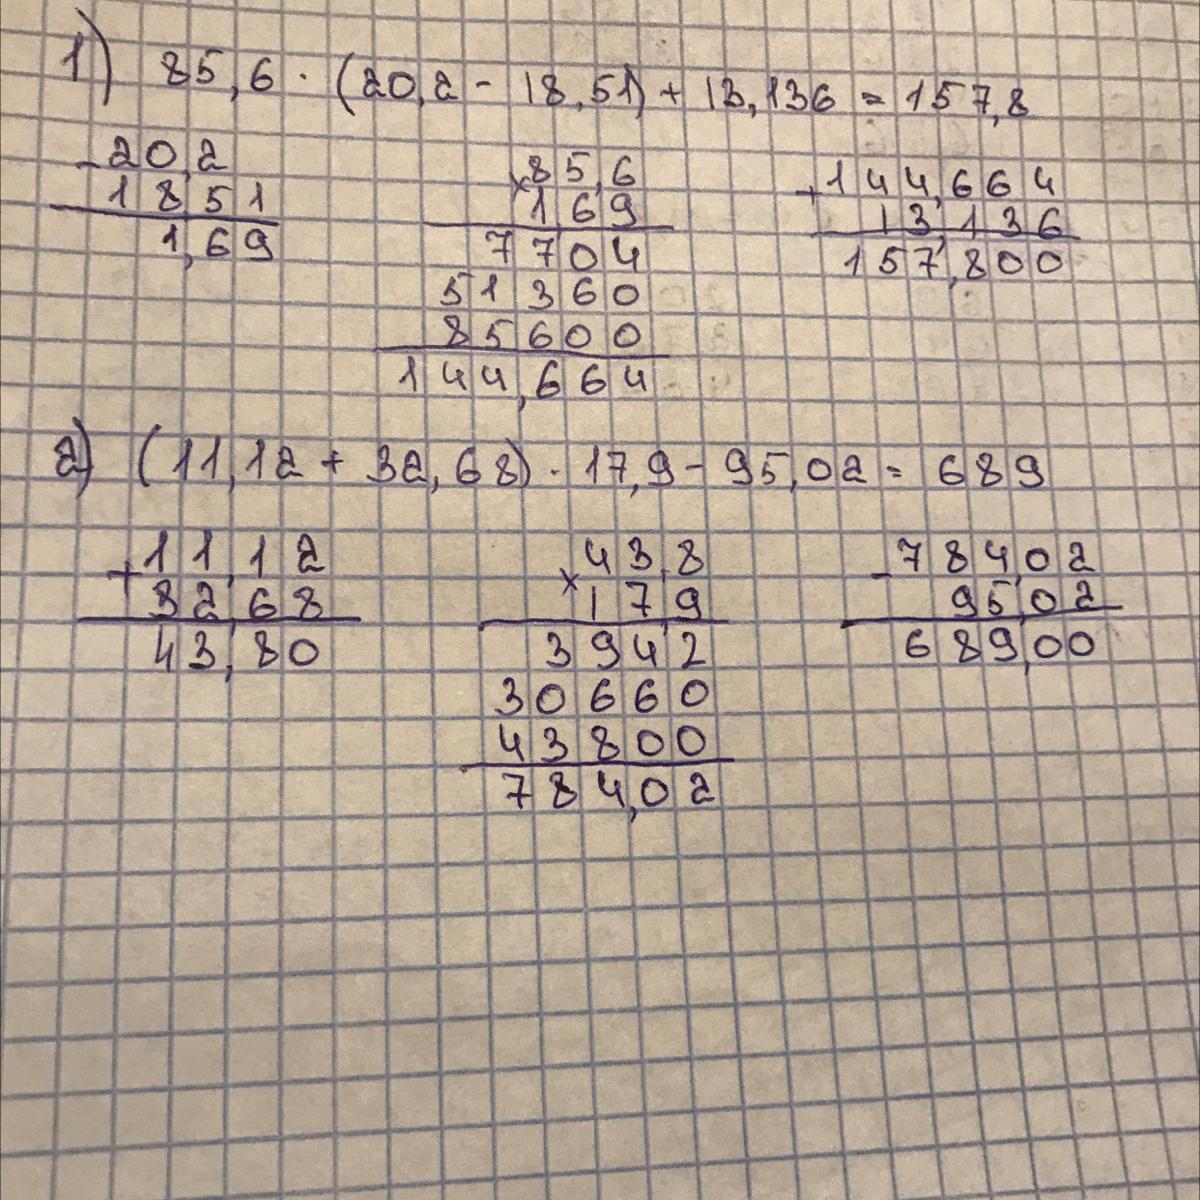 1) 85,6 · (20,2 - 18,51) + 13,136 = 157,8
- 20,2
18,51
1,69
× 85,6
1,69
7704
51360
85600
144,664
+ 144,664
13,136
157,800
2) (11,12 + 32,68) · 17,9 - 95,02 = 689
+ 11,12
32,68
43,80
× 43,8
17,9
3942
30660
43800
784,02
- 784,02
95,02
689,00